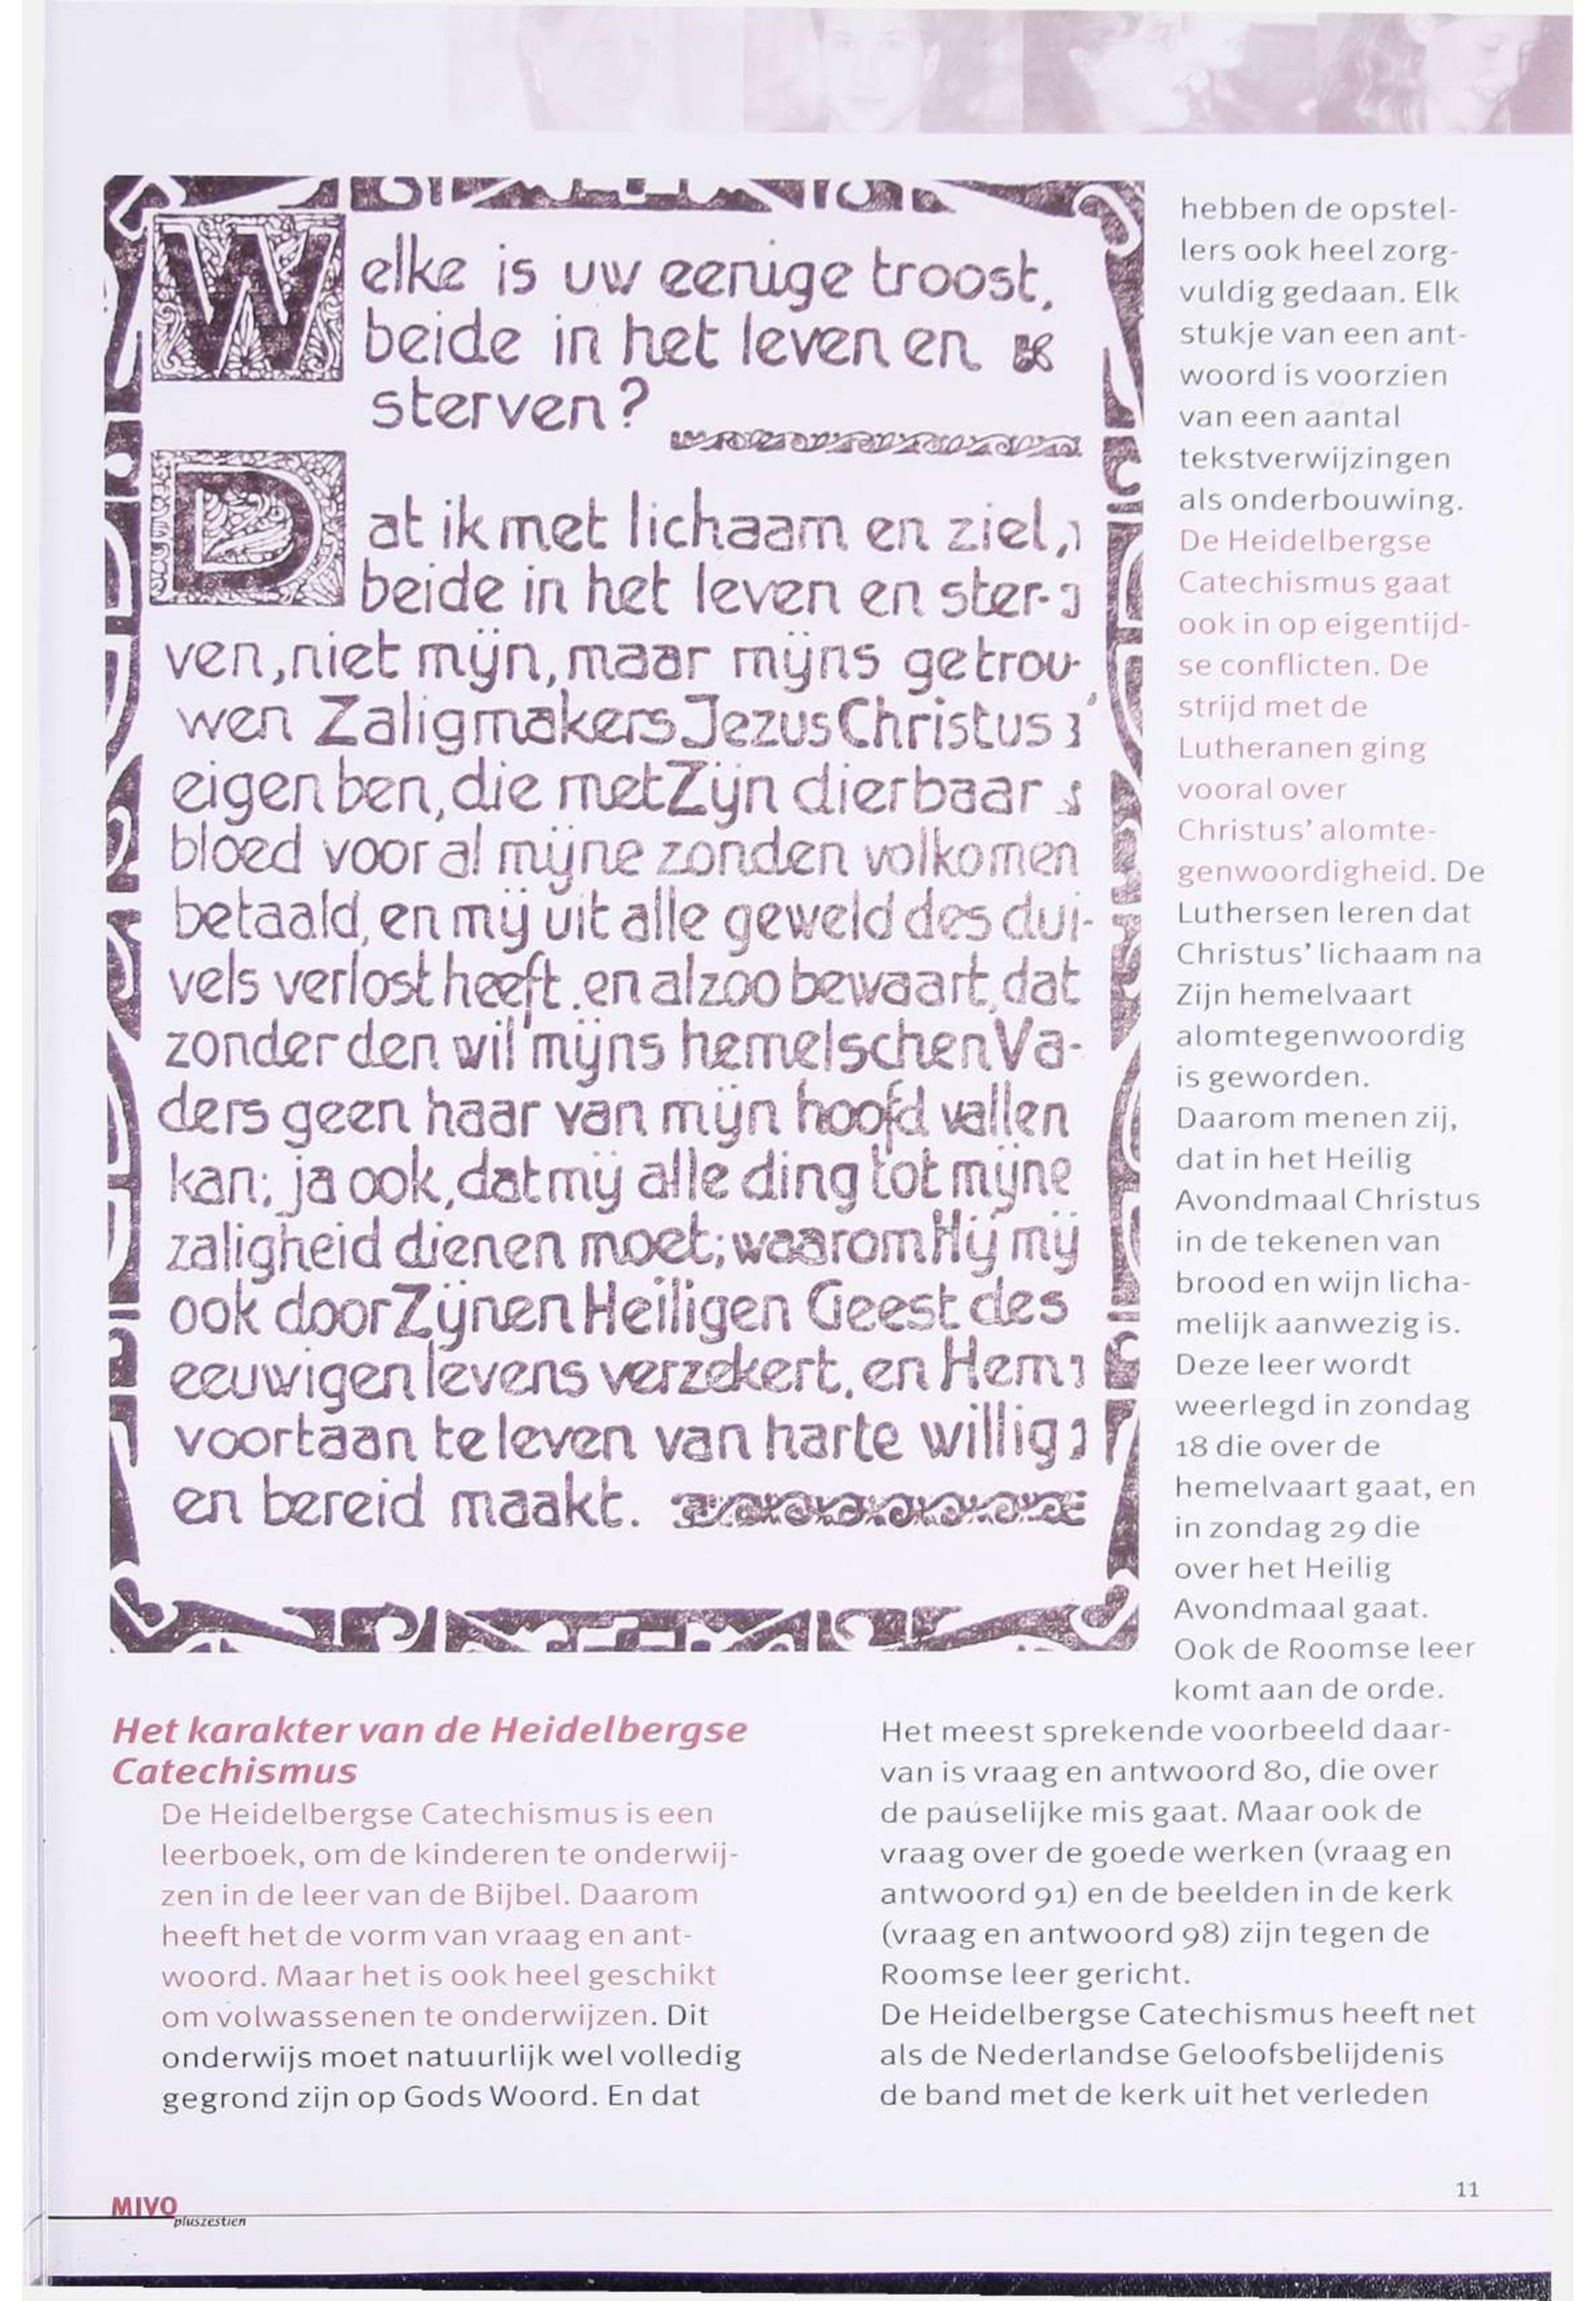 Welke is uw eenige troost,
beide in het leven en
sterven?
Dat ik met lichaam en ziel,
beide in het leven en ster-
ven, niet mijn, maar mijns getrou-
wen Zaligmakers Jezus Christus
eigen ben, die met Zijn dierbaar
bloed voor al mijne zonden volkomen
betaald, en mij uit alle geweld des dui-
vels verlost heeft, en alzoo bewaart, dat
zonder den wil mijns hemelschen Va-
ders geen haar van mijn hoofd vallen
kan; ja ook, dat mij alle ding tot mijne
zaligheid dienen moet; waarom Hij mij
ook door Zijnen Heiligen Geest des
eeuwigen levens verzekert, en Hem
voortaan te leven van harte willig
en bereid maakt.
Het karakter van de Heidelbergse
Catechismus
De Heidelbergse Catechismus is een
leerboek, om de kinderen te onderwij-
zen in de leer van de Bijbel. Daarom
heeft het de vorm van vraag en ant-
woord. Maar het is ook heel geschikt
om volwassenen te onderwijzen. Dit
onderwijs moet natuurlijk wel volledig
gegrond zijn op Gods Woord. En dat
hebben de opstel-
lers ook heel zorg-
vuldig gedaan. Elk
stukje van een ant-
woord is voorzien
van een aantal
tekstverwijzingen
als onderbouwing.
De Heidelbergse
Catechismus gaat
ook in op eigentijd-
se conflicten. De
strijd met de
Lutheranen ging
vooral over
Christus' alomte-
genwoordigheid. De
Luthersen leren dat
Christus' lichaam na
Zijn hemelvaart
alomtegenwoordig
is geworden.
Daarom menen zij,
dat in het Heilig
Avondmaal Christus
in de tekenen van
brood en wijn licha-
melijk aanwezig is.
Deze leer wordt
weerlegd in zondag
18 die over de
hemelvaart gaat, en
in zondag 29 die
over het Heilig
Avondmaal gaat.
Ook de Roomse leer
komt aan de orde.
Het meest sprekende voorbeeld daar-
van is vraag en antwoord 80, die over
de pauselijke mis gaat. Maar ook de
vraag over de goede werken (vraag en
antwoord 91) en de beelden in de kerk
(vraag en antwoord 98) zijn tegen de
Roomse leer gericht.
De Heidelbergse Catechismus heeft net
als de Nederlandse Geloofsbelijdenis
de band met de kerk uit het verleden
MIVO
pluszestien
11